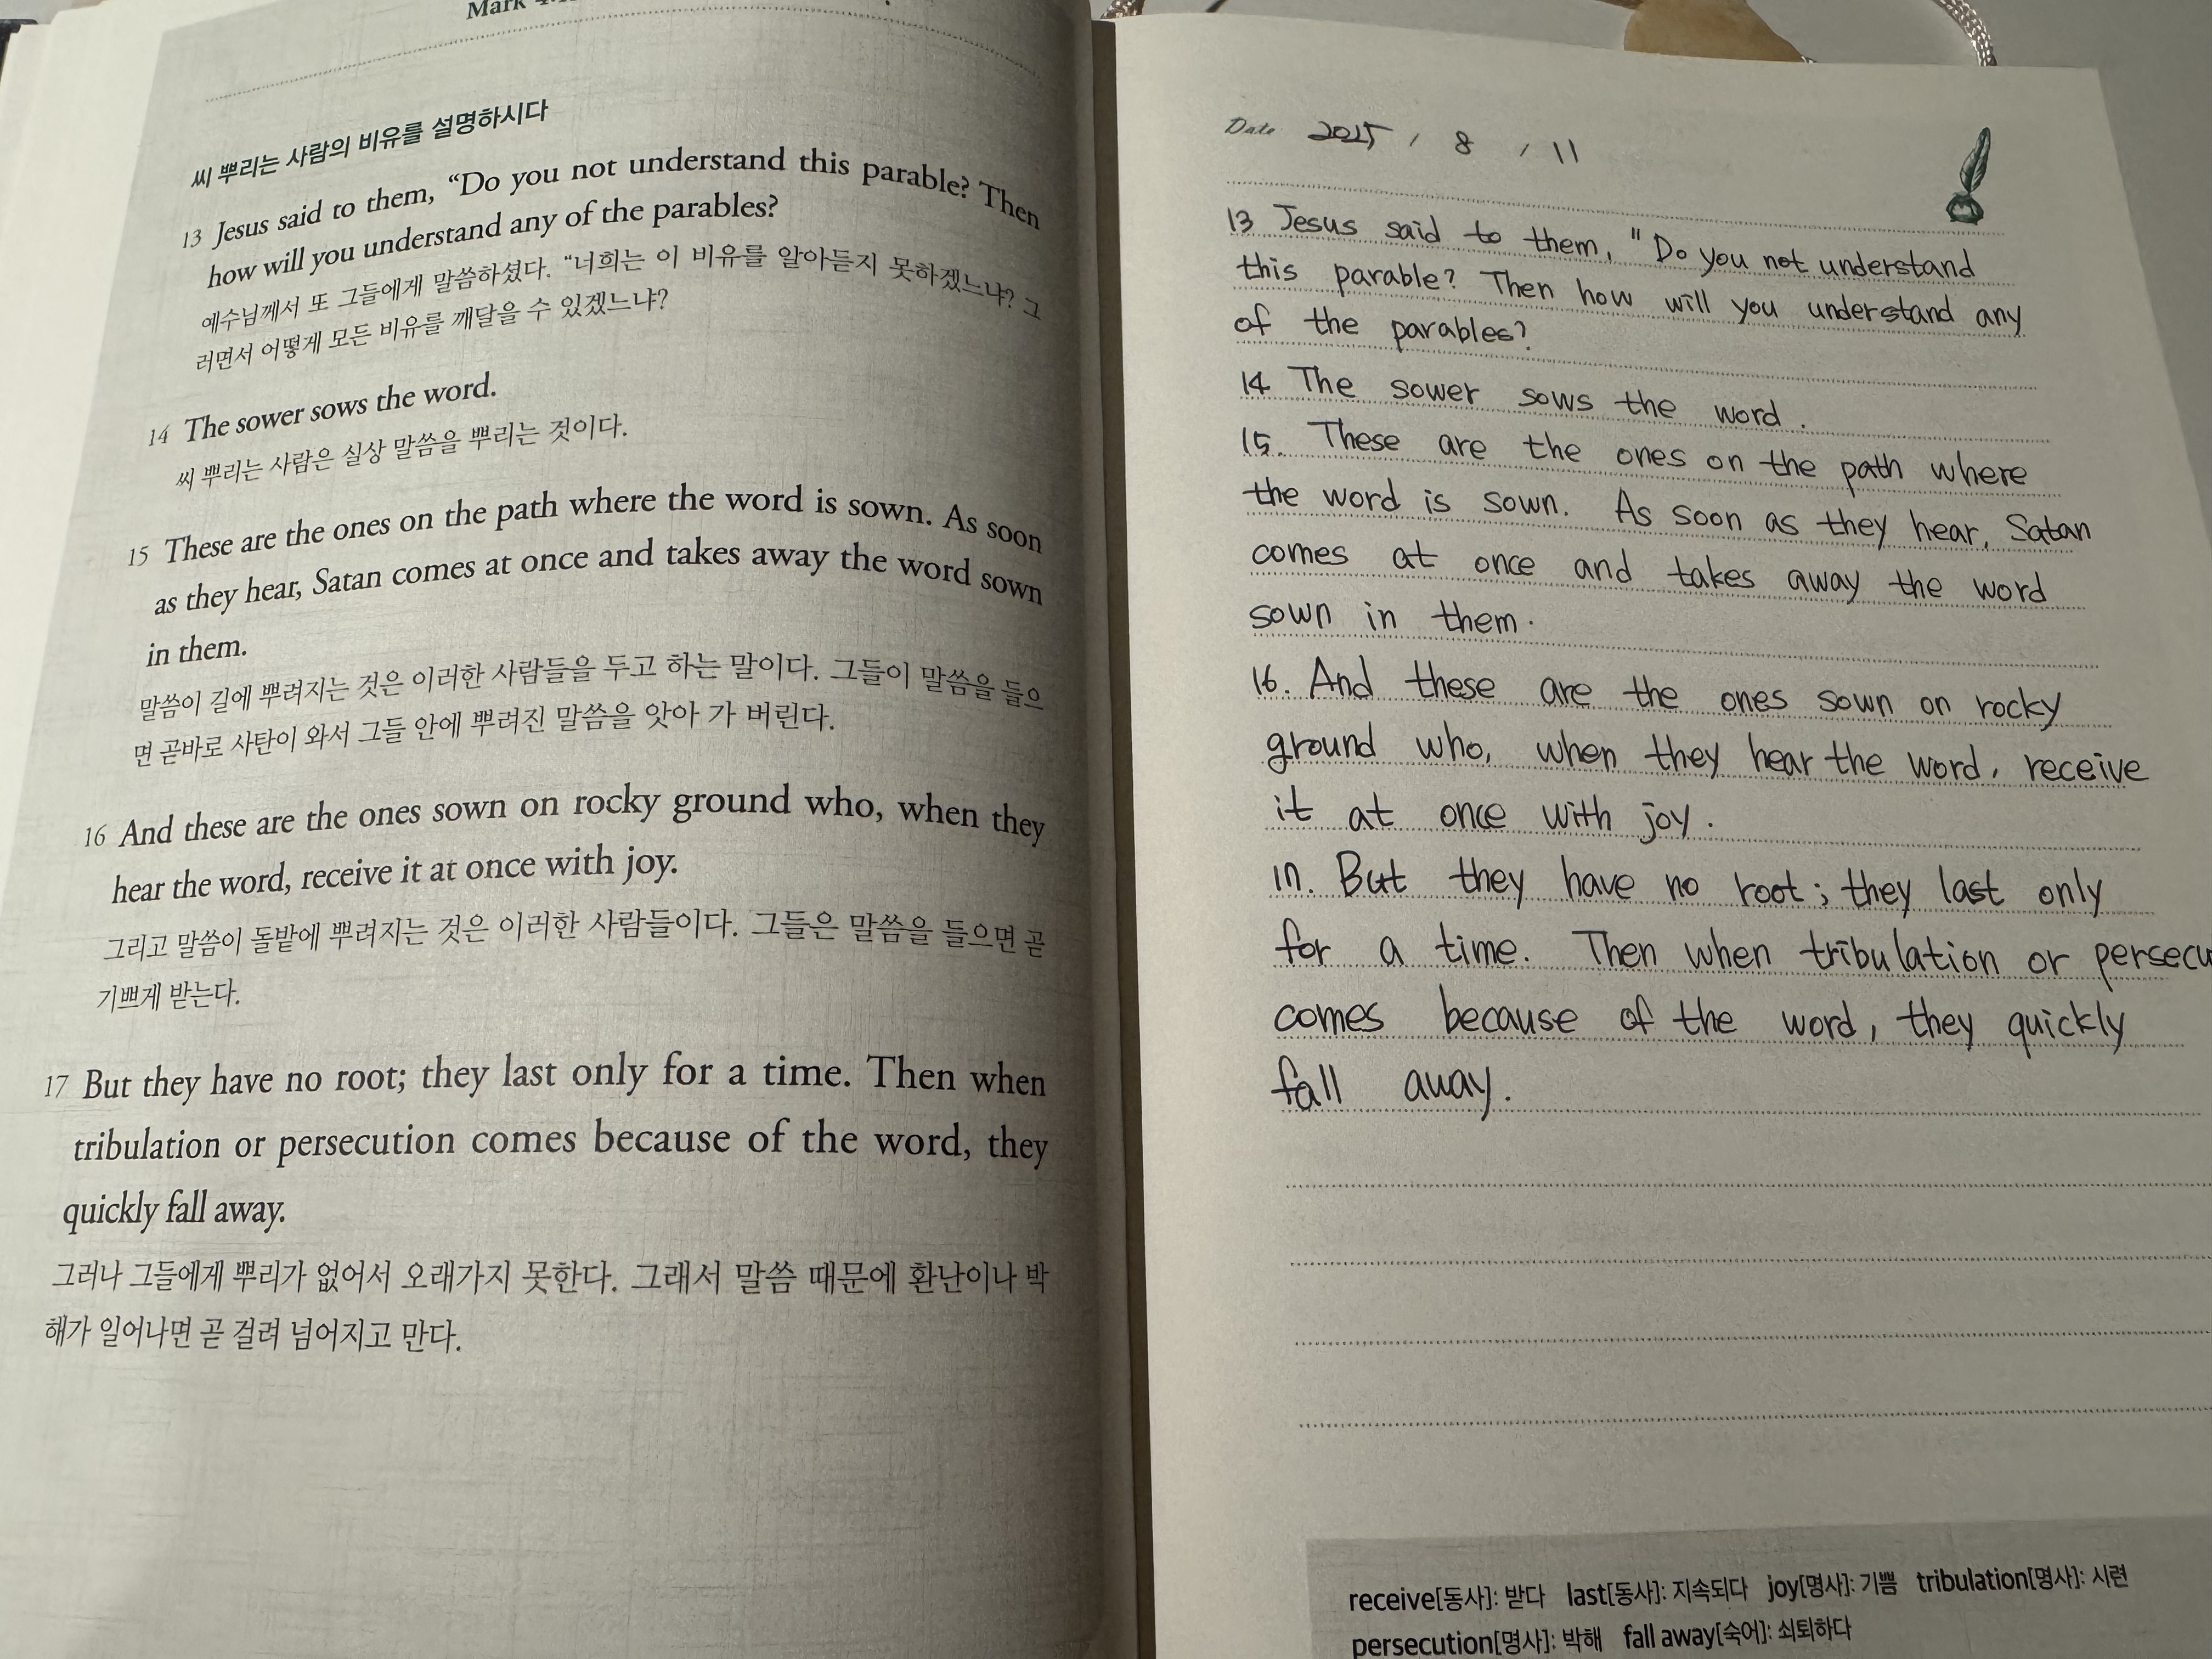 Mark
씨 뿌리는 사람의 비유를 설명하시다
13 Jesus said to them, “Do you not understand this parable? Then
how will you understand any of the parables?
예수님께서 또 그들에게 말씀하셨다. “너희는 이 비유를 알아듣지 못하겠느냐? 그
러면서 어떻게 모든 비유를 깨달을 수 있겠느냐?
14 The sower sows the word.
씨 뿌리는 사람은 실상 말씀을 뿌리는 것이다.
15 These are the ones on the path where the word is sown. As soon
as they hear, Satan comes at once and takes away the word sown
in them.
말씀이 길에 뿌려지는 것은 이러한 사람들을 두고 하는 말이다. 그들이 말씀을 들으
면 곧바로 사탄이 와서 그들 안에 뿌려진 말씀을 앗아 가 버린다.
16 And these are the ones sown on rocky ground who, when they
hear the word, receive it at once with joy.
그리고 말씀이 돌밭에 뿌려지는 것은 이러한 사람들이다. 그들은 말씀을 들으면 곧
기쁘게 받는다.
17 But they have no root; they last only for a time. Then when
tribulation or persecution comes because of the word, they
quickly fall away.
그러나 그들에게 뿌리가 없어서 오래가지 못한다. 그래서 말씀 때문에 환난이나 박
해가 일어나면 곧 걸려 넘어지고 만다.
Date 2025 / 8 / 11
13 Jesus said to them, "Do you not understand
this parable? Then how will you understand any
of the parables?
14 The sower sows the word.
15. These are the ones on the path where
the word is sown. As soon as they hear, Satan
comes at once and takes away the word
sown in them.
16. And these are the ones sown on rocky
ground who, when they hear the word, receive
it at once with joy.
17. But they have no root; they last only
for a time. Then when tribulation or persecu
comes because of the word, they quickly
fall away.
receive[동사]: 받다 last[동사]: 지속되다 joy[명사]: 기쁨 tribulation[명사]: 시련
persecution[명사]: 박해 fall away[숙어]: 쇠퇴하다